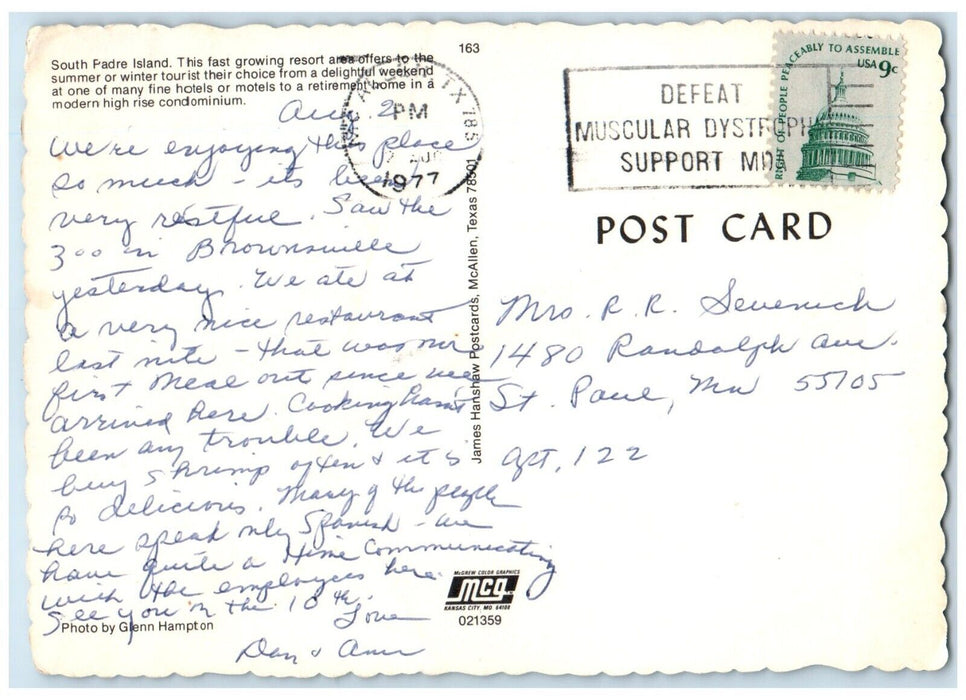 South Padre Island. This fast growing resort area offers to the
summer or winter tourist their choice from a delightful weekend
at one of many fine hotels or motels to a retirement home in a
modern high rise condominium.
163
Aug. 2
We're enjoying this place
so much - its been
very restful. Saw the
zoo in Brownsville
yesterday. We ate at
a very nice restaurant
last nite - that was our
first meal out since we
arrived here. Cooking hasn't
been any trouble. We
buy shrimp often & it's
so delicious. Many of the people
here speak only Spanish - we
have quite a time communicating
with the employees here.
See you on the 10th.
Love
Dan & Ann
Photo by Glenn Hampton
James Hanshaw Postcards, McAllen, Texas 78501
McGREW COLOR GRAPHICS
mcg
KANSAS CITY, MO. 64108
021359
TX 785
PM
2 AUG
1977
DEFEAT
MUSCULAR DYSTROPH
SUPPORT MDA
RIGHT OF PEOPLE PEACEABLY TO ASSEMBLE
USA 9c
POST CARD
Mrs. R. R. Sevenich
1480 Randolph Ave.
St. Paul, Mn 55105
Apt. 122